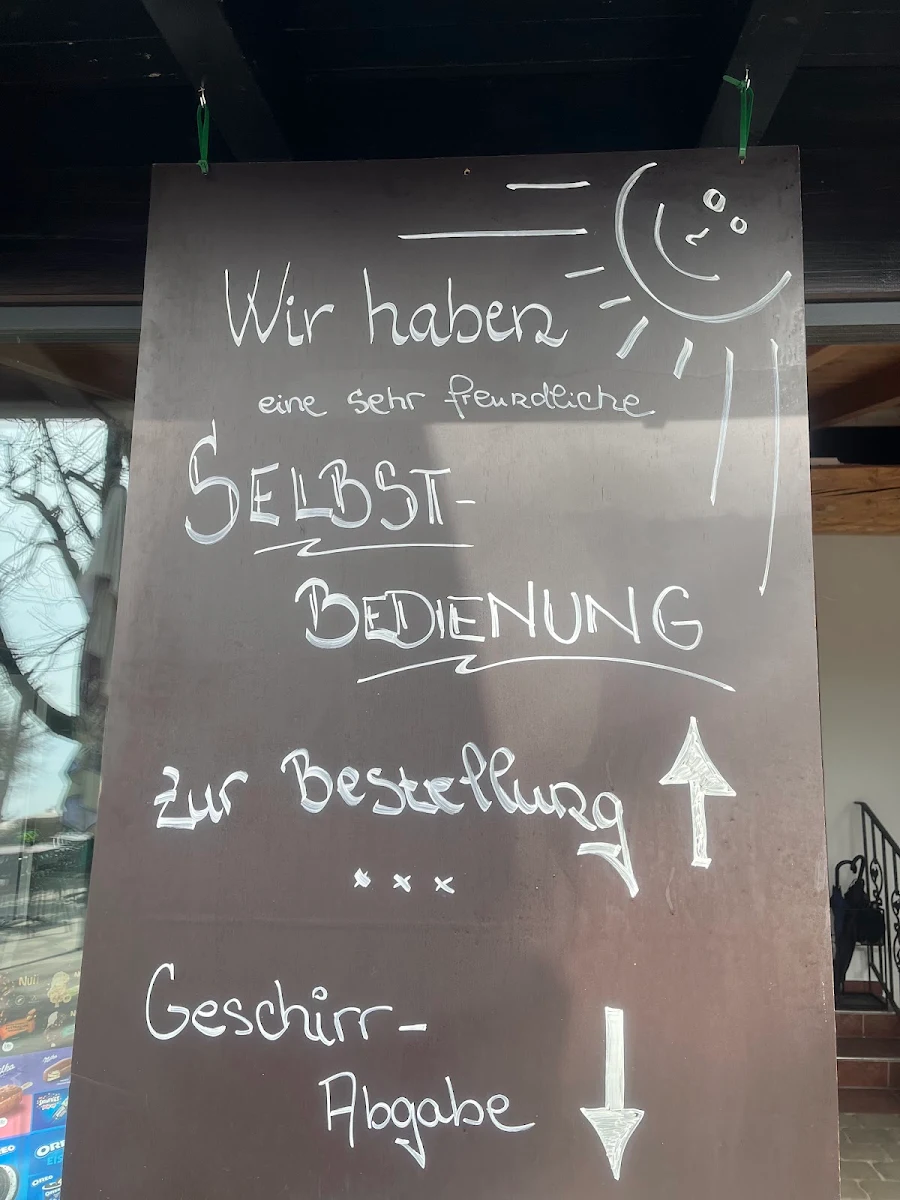 Wir haben
eine sehr freundliche
SELBST-
BEDIENUNG
zur Bestellung
x x x
Geschirr-
Abgabe
Nuii
OREO